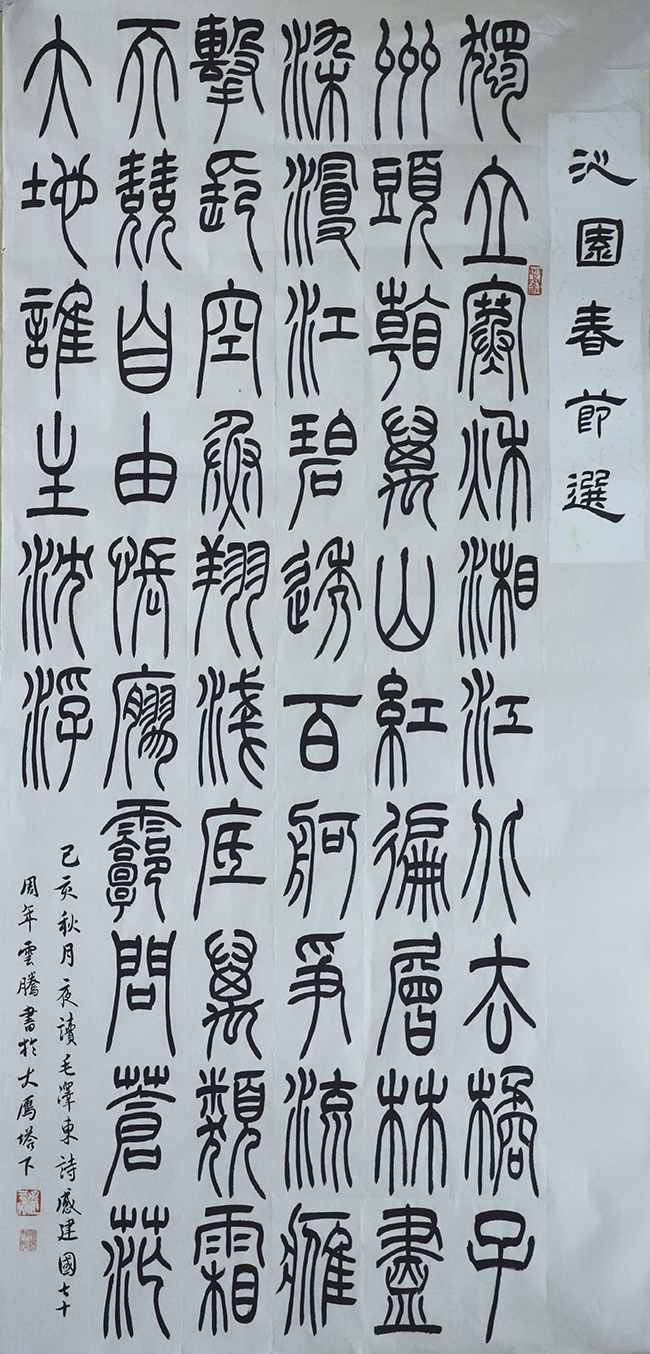 沁園春節選
獨立寒秋湘江北去橘子
州頭看萬山紅徧層林盡
染漫江碧透百舸爭流鷹
擊長空魚翔淺底萬類霜
天競自由悵寥廓問蒼茫
大地誰主沈浮
己亥秋月夜讀毛澤東詩感建國七十
周年雲騰書於大鴈塔下